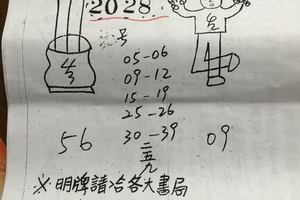 2028
05-06
09-12
15-19
25-26
56 30-39 09
二五九
※明牌請洽各大書局